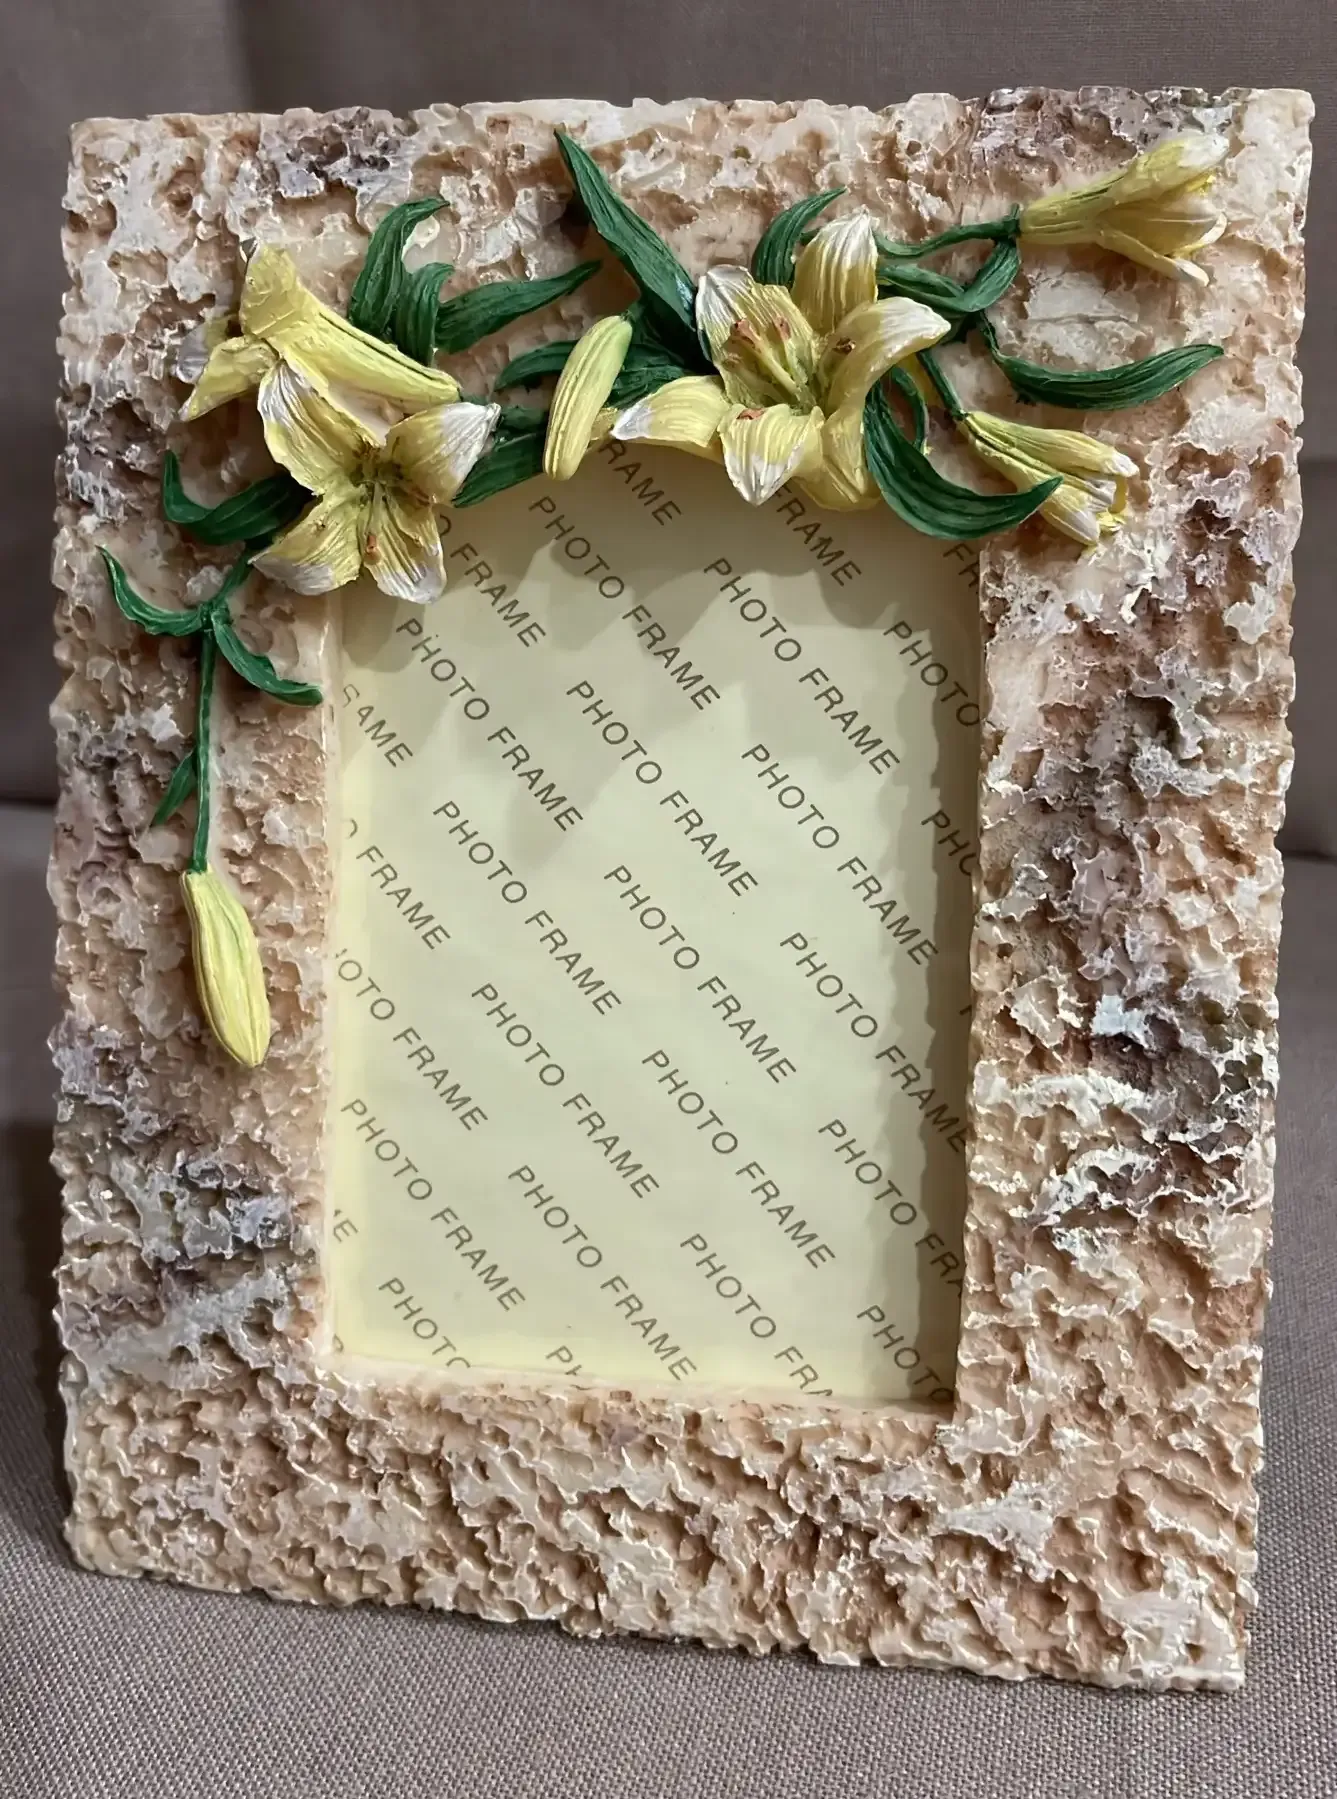 RAME
FRAME
FR
O FRAME
PHOTO FRAME
PHOTO FRAME
PHOTO
AME
PHOTO FRAME
PHOTO FRAME
PHOTO FRAME
PHO
O FRAME
PHOTO FRAME
PHOTO FRAME
PHOTO FRAME
OTO FRAME
PHOTO FRAME
PHOTO FRAME
PHOTO FRA
PHOTO FRAME
PHOTO FRAME
PHOTO FRA
PHOTO
E
PHOTO
PH